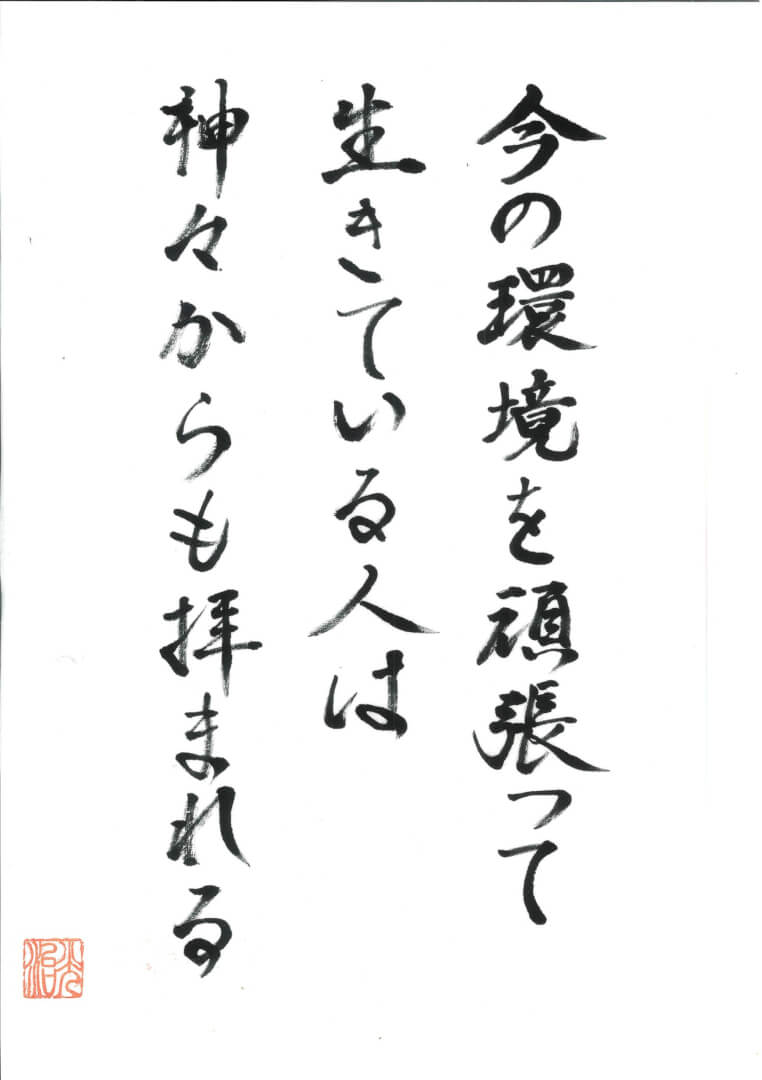 今の環境を頑張って
生きている人は
神々からも拝まれる